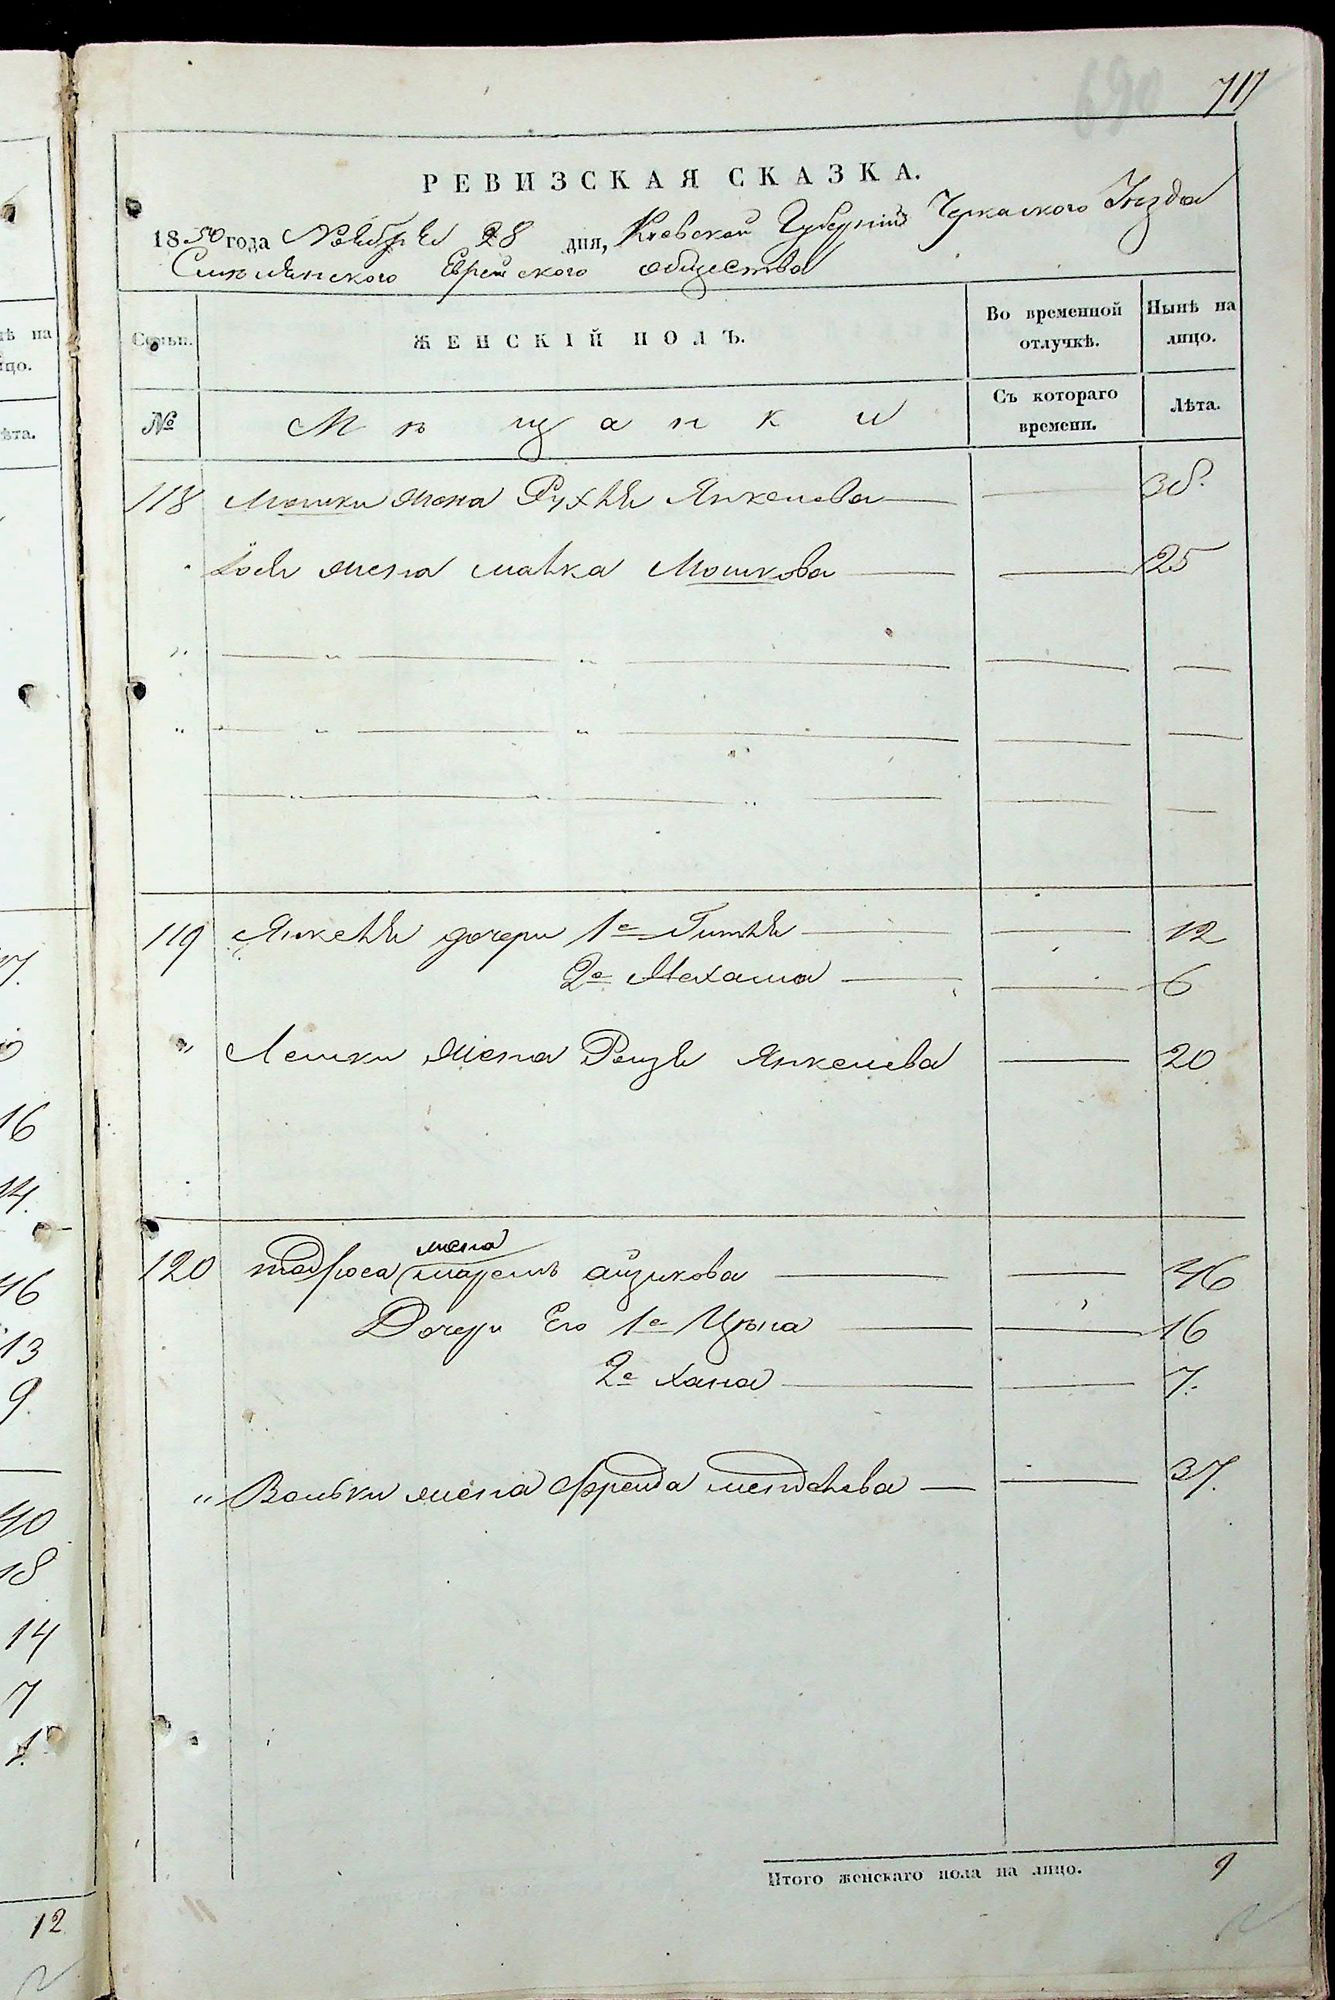 690 717
РЕВИЗСКАЯ СКАЗКА.
1850 года Ноября 28 дня, Киевской Губерніи Черкаского Уезда
Смилянского Еврейского общества
Семьи. ЖЕНСКІЙ ПОЛЪ. Во временной отлучкѣ. Нынѣ на лицо.
№ Мѣщанки Съ котораго времени. Лѣта.
118 Мошки жена Рухля Янкелева 38.
Іося жена Малка Мошкова 25
119 Янкеля дочери 1е Гитля 12
2е 6
" Лешки жена Янкелева 20
жена
120 Тодроса айзикова 46
Дочери Его 1е 16
2е хана 7.
" Вольки жена Фрейда менделева 37.
Итого женскаго пола на лицо. 9
ѣ на
цо.
ѣта.
7.
0
16
14.
46
13
9.
40
18
14
7
1.
12